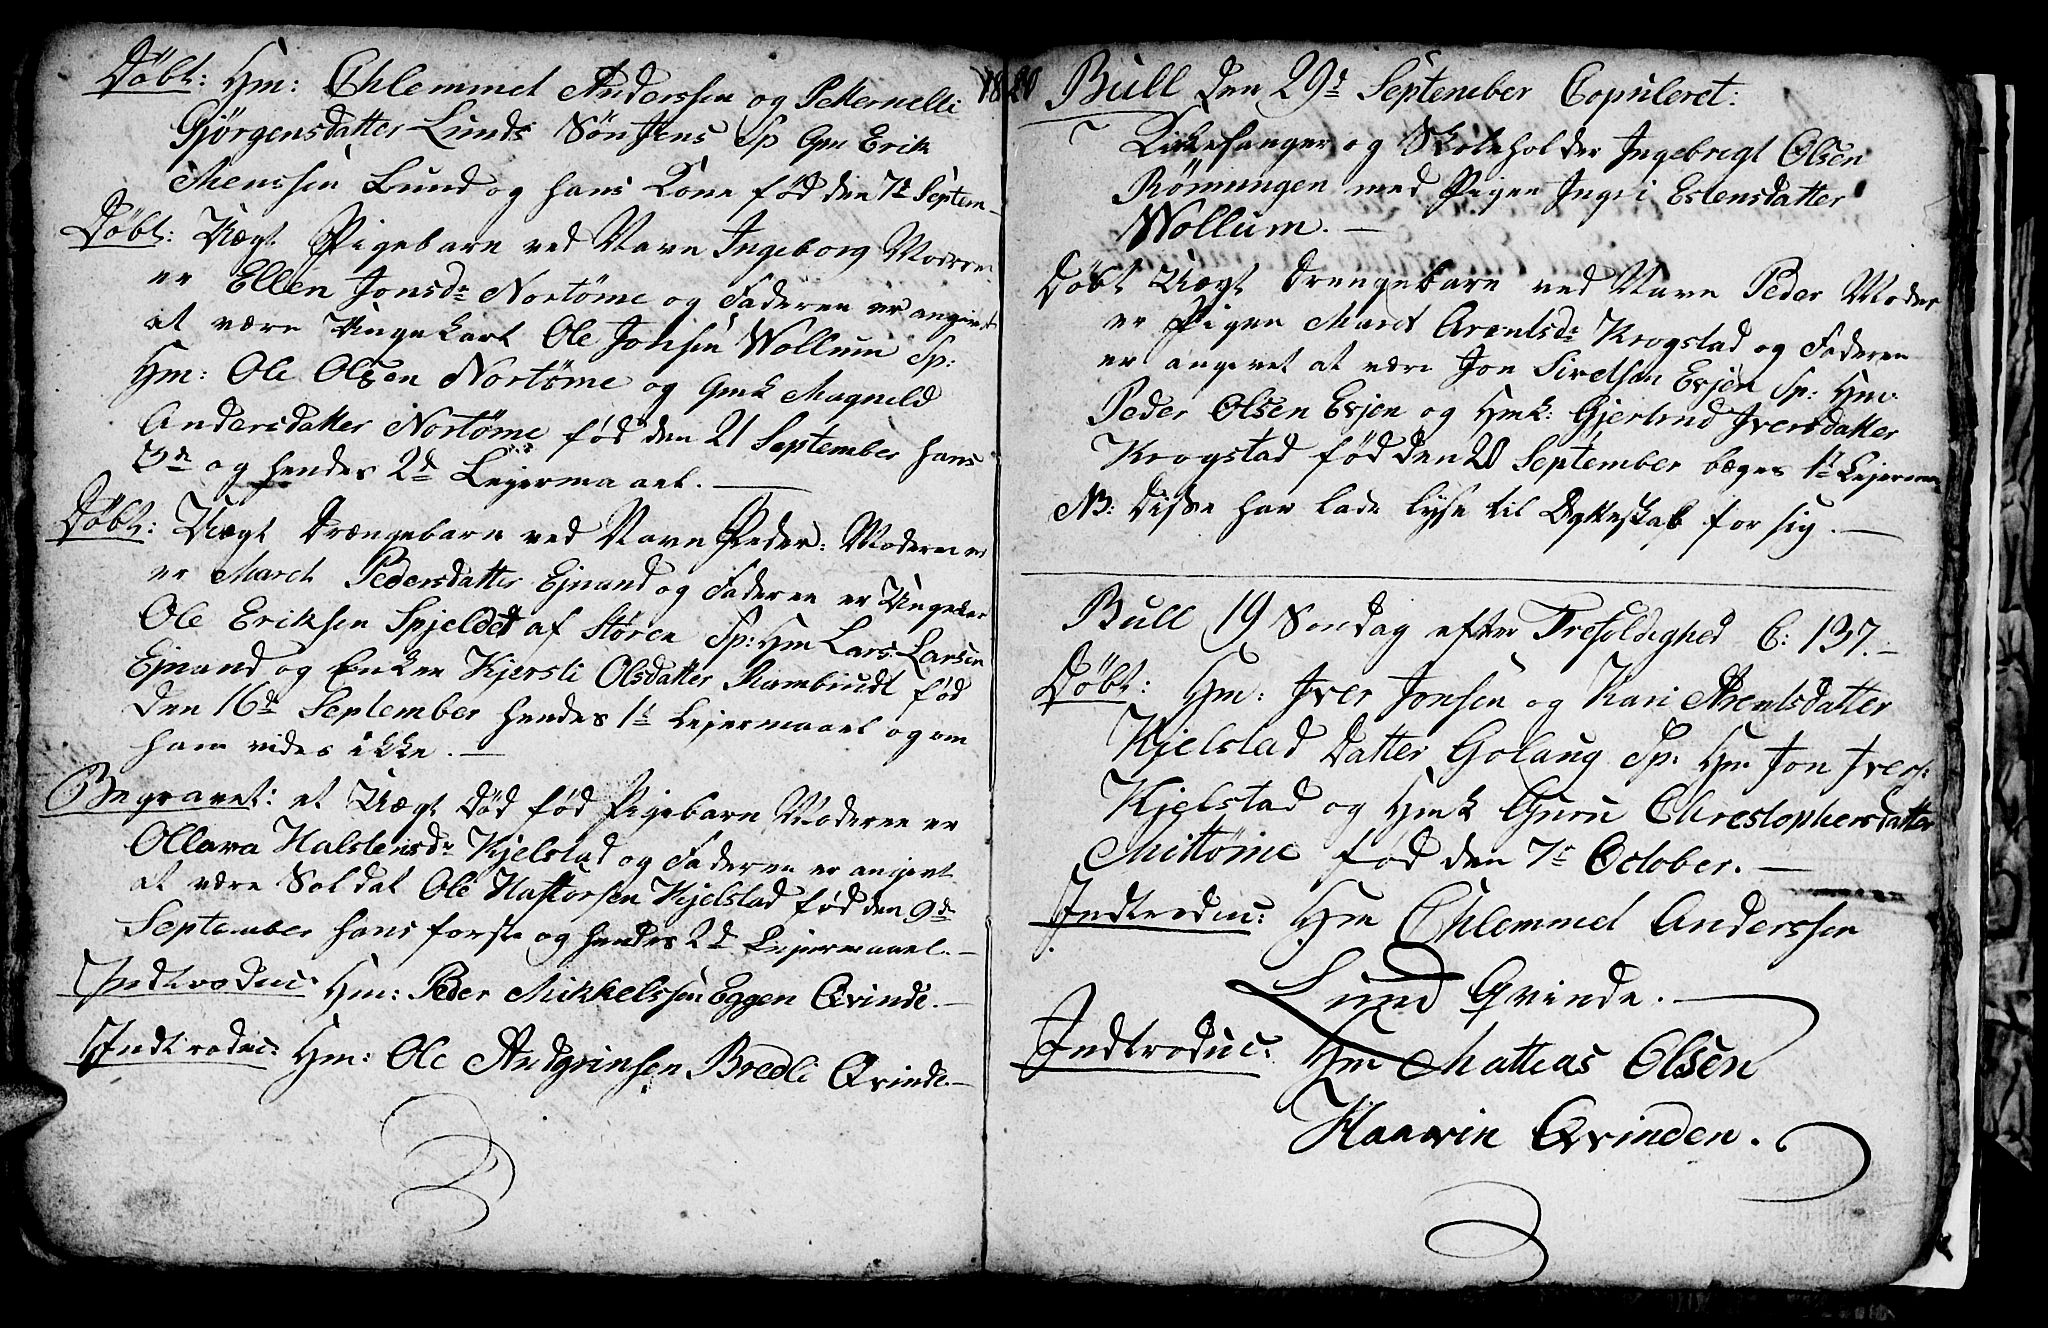 Døbt: Hm: Chlemmet Anderssen og Pekernelli
Gjörgensdatter Lunds Søn Jens Sp Gm Erik
Menssen Lund og hans Kone fød den 7de Septem-
Døbt: Uægt Pigebarn ved Navn Ingeborg Moderen
er Ellen Jonsdr Nortöme og Faderen er angivet
at være Ungekarl Ole Jonsen Wollum Sp:
Hm: Ole Olsen Nortöme og Gmk Magneld
Andersdatter Nortöme fød den 21 September hans
3de og hendes 2d Lejermaael. —
Døbt: Uægt Drængebarn ved Navn Peder: Moderen er
er Maret Pedersdatter Ejnand og Faderen er Ungekar
Ole Eriksen Spjeldet af Støren Sp: Hm Lars Larsen
Ejnand og Enken Kjersti Olsdatter Rambiudt fød
den 16de September hendes 1te Lejermaael og om
ham vides ikke. —
Begravet: et Uægt Død fød Pigebarn Moderen er
Ollava Halstensdr Kjelstad og Faderen er angivet
at være Soldat Ole Haftorsen Kjelstad fød den 9de
September hans forste og hendes 2d Lejermaael. —
Indtroduc: Hm: Peder Mikkelssen Eggen Qvinde. —
Indtroduc: Hm: Ole Andgrinsen Bredli Qvinde. —
1820
Bull den 29d September Copuleret:
Kirkesanger og Skoleholder Ingebrigt Olsen
Römungen med Pigen Ingri Estensdatter
Wollum. —
Døbt Uægt Drengebarn ved Navn Peder Moder
er Pigen Maret Arentsdr Krogstad og Faderen
er angevet at være Jon Sivetsen Evjen Sp: Hm:
Peder Olsen Evjen og Hmk: Gjertrud Iversdatter
Krogstad fød den 20 September bæges 1te Lejerma
NB: Disse har lade lyse til Ægteskab for sig. —
Bull 19 Søndag efter Trefoldighed C: 137. —
Døbt: Hm: Iver Jonsen og Kari Arentsdatter
Kjelstad Datter Golaug Sp: Hm Jon Ivers:
Kjelstad og Hmk Guru Chrestophersdatter
Mittöme fød den 7de October. —
Indtroduc: Hm Chlemmet Anderssen
Lund Qvinde. —
Indtroduc: Hm Mattias Olsen
Haavin Qvinden.